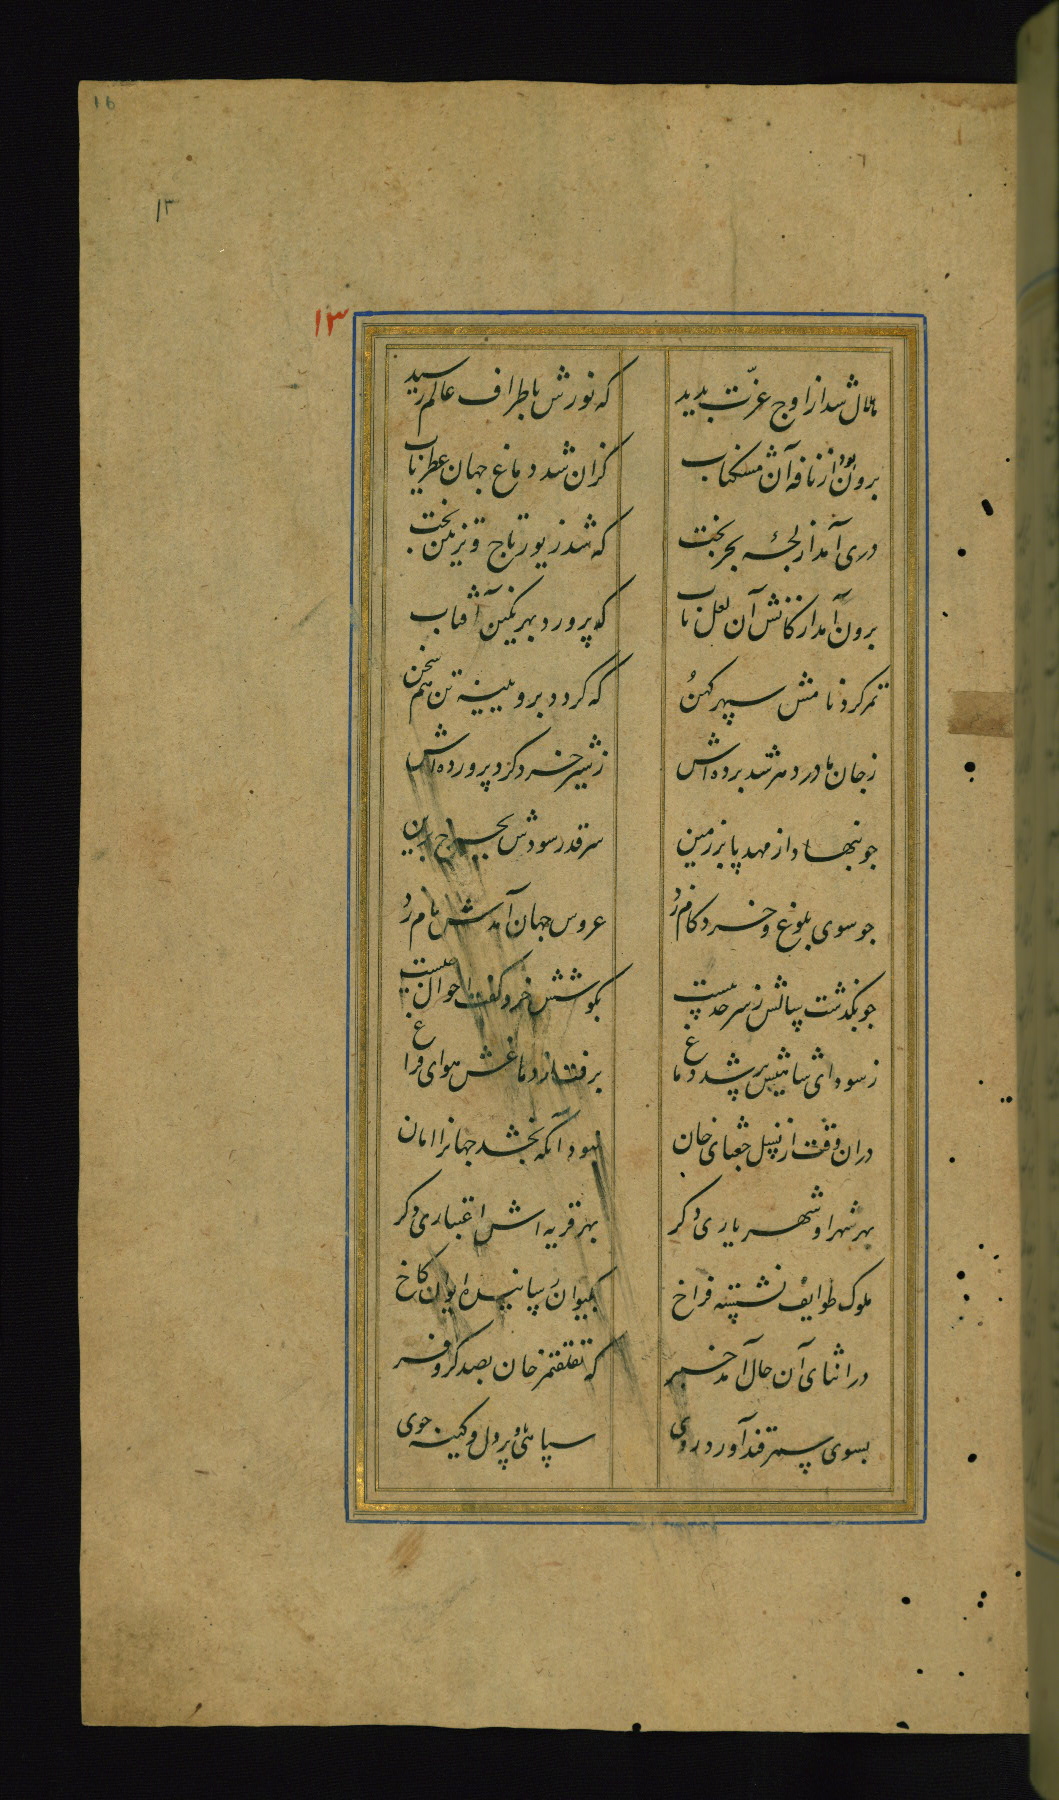 16
۱۳
۱۳
هلال شد از اوج عزّت پدید که نورش باطراف عالم رسید
برون بود از نافه آن مشکناب گران شد دماغ جهان عطر یاب
دری آمد از لجهٔ بحر بخت که شد زیور تاج و تزیین تخت
برون آمد از کانش آن لعل ناب که پرورد بهر نگین آفتاب
تمر کرد نامش سپهر کهن که گردد برویینه تن هم سخن
ز جان مادر دهر شد برده اش ز شیر خرد کرد پرورده اش
چو بنهاد از مهد پا بر زمین سر قدر سودش بچرخ برین
چو سوی بلوغ و خرد کام زد عروس جهان آمدش بام زد
چو بگذشت سالش ز سرحد بیست بگوشش خرد گفت احوال چیست
ز سودای شاهیش پر شد دماغ برفت از دماغش هوای فراغ
دران وقت از نسل جغتای خان نبود آنکه بخشد جهانرا امان
بهر شهر او شهریاری دگر بهر قریه اش اعتباری دگر
ملوک طوایف نشسته فراخ بکیوان رسانیده ایوان کاخ
در اثنای آن حال آمد خبر که تغلقتمر خان بصد کر و فر
بسوی سمرقند آورد روی سپاهی و پردل و کینه جوی